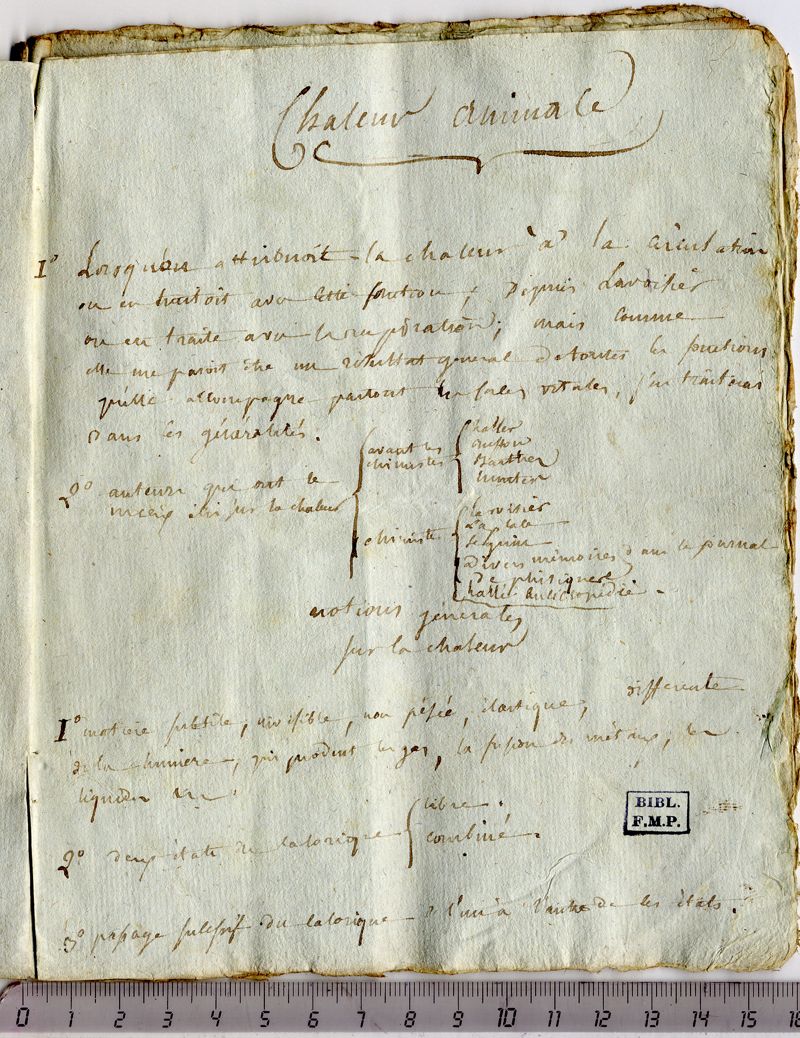 Chaleur animale
1° Lorsqu'on attribuoit la chaleur à la circulation
on en traitoit avec cette fonction; Depuis Lavoisier
on en traite avec la respiration; mais comme
elle me paroit être un résultat general de toutes les fonctions
qu'elle accompagne partout les forces vitales, j'en traiterai
dans les généralités.
2° auteurs qui ont le
mieux écrit sur la chaleur
avant les
chimistes
haller
Buffon
Barthez
hunter
chimiste
lavoisier
La place
seguin
divers mémoires dans le journal
De phisique
hallé encicropédie.
notions générales
sur la chaleur
1° matière subtile, invisible, non pésée, élastique, differente
de la lumiere, qui produit les gas, la fusion des métaux, les
liquides
2° deux états de calorique
libre.
combiné.
3° passage successif du calorique de l'un à l'autre de ces états.
BIBL.
F.M.P.
0 1 2 3 4 5 6 7 8 9 10 11 12 13 14 15 16